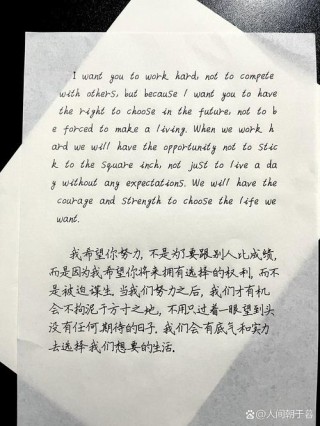 I want you to work hard, not to compete
with others, but because I want you to have
the right to choose in the future, not to b
e forced to make a living. When we work h
ard we will have the opportunity not to stic
k to the square inch, not just to live a da
y without any expectations. We will have the
courage and strength to choose the life we
want.
我希望你努力，不是为了要跟别人比成绩，
而是因为我希望你将来拥有选择的权利，而不
是被迫谋生。当我们努力之后，我们才有机
会不拘泥于方寸之地，不用只过着一眼望到头
没有任何期待的日子。我们会有底气和实力
去选择我们想要的生活。
@人间朝于暮